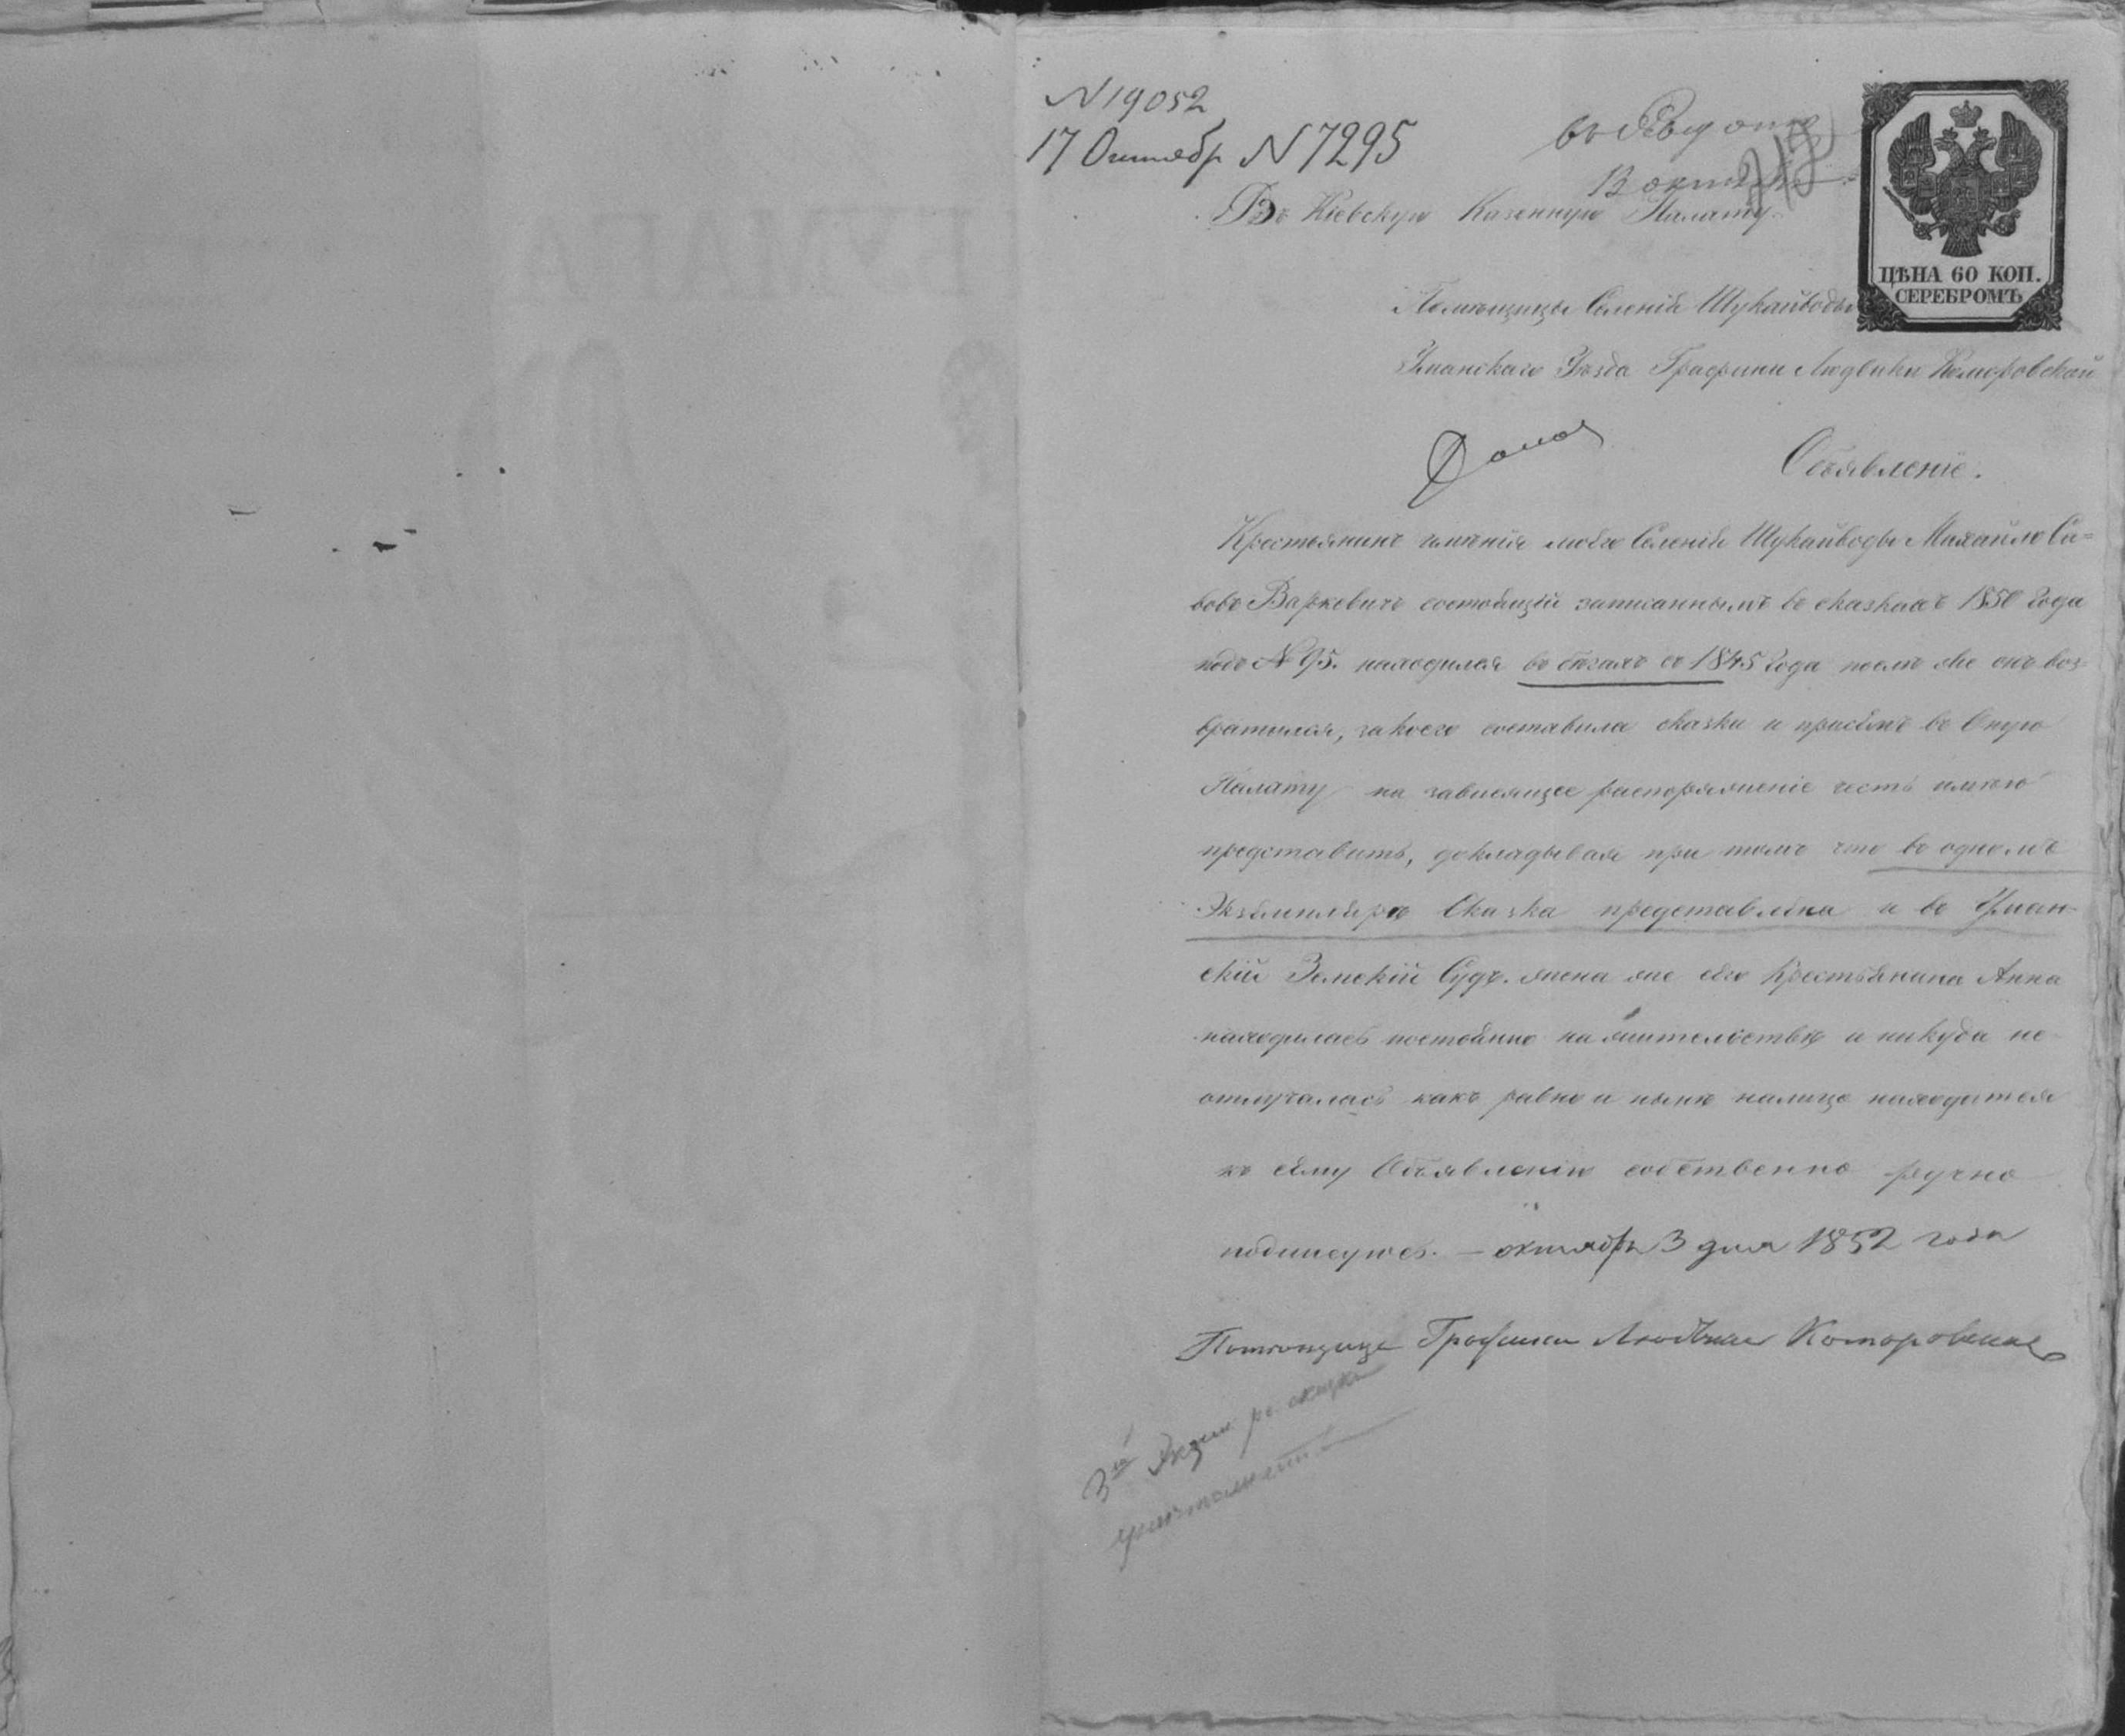 N 19052
17 Октябр N 7295
13 октября
Въ Кіевскую Казенную Палату
ЦѢНА 60 КОП.
СЕРЕБРОМЪ
Помѣщицы Селенія Шукайводы
Уманскаго Уѣзда Графини Людвики Коморовской
Объявленіе.
Крестьянинъ имѣнія моего Селенія Шукайводы Михайло Са=
вовъ Варковичъ состоящій записаннымъ въ сказкахъ 1850 года
подъ № 95. находился въ бѣгахъ съ 1845 года нынѣ же онъ воз-
вратился, за коего составила сказки и присемъ въ Оную
Палату на зависящее распоряженіе честь имѣю
представить, докладывая при томъ что въ одномъ
Экземплярѣ Сказка представлена и въ Уман-
скій Земскій Судъ. жена же его Крестьянина Анна
находилась постоянно на жительствѣ и никуда не
отлучалась какъ равно и нынѣ налицо находится
къ сему Объявленію собственно ручно
подписуюсь. – октября 3 дня 1852 года
Помѣщица Графиня Людвика Коморовская
3й Экзем. рев. сказки